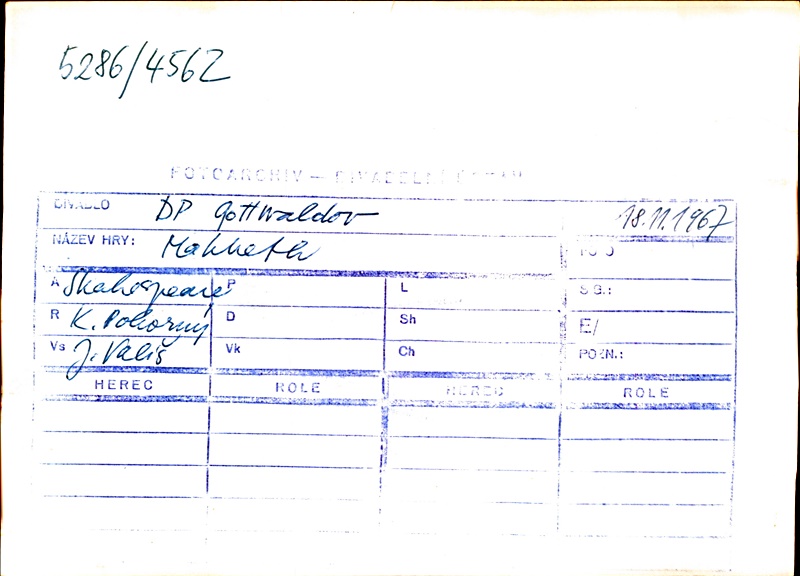 5286/4562
FOTOARCHIV — DIVADELNÍ ÚSTAV
DIVADLO DP Gottwaldov 18.11.1967
NÁZEV HRY: Makbeth FOTO
A Shakespeare P L SG.:
R K. Pokorný D Sh E/
Vs J. Vališ Vk Ch POZN.:
HEREC ROLE HEREC ROLE